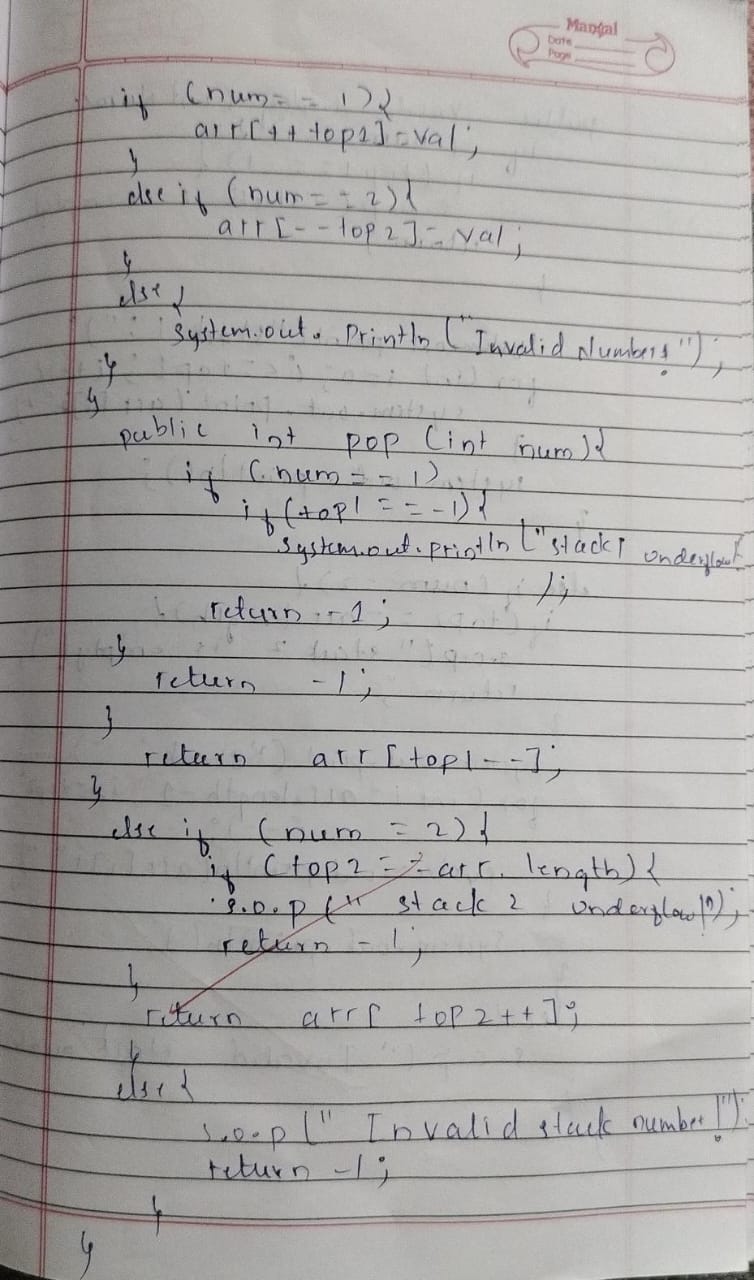 Mangal
Date
Page
if (num == 1){
arr[++top1]=val;
}
else if (num == 2){
arr[--top2]=val;
}
else {
System.out.Println("Invalid Numbers");
}
}
public int pop (int num){
if (num == 1)
if (top1 == -1){
System.out.println("stack1 underflow"
);
return -1;
}
return -1;
}
return arr[top1--];
}
else if (num = 2){
if (top2 == arr.length){
S.o.p(" stack 2 underflow!");
return -1;
}
return arr[top2++];
}
else {
S.o.p(" Invalid stack number!");
return -1;
}
}